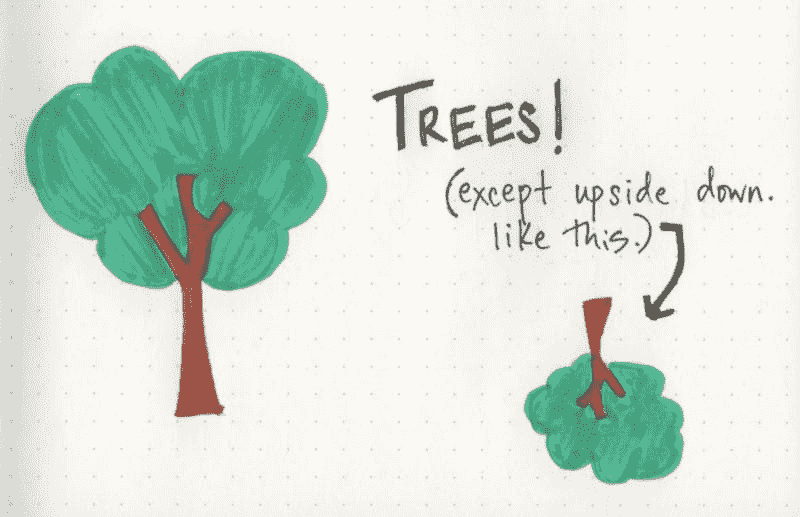 TREES!
(except upside down.
like this.)